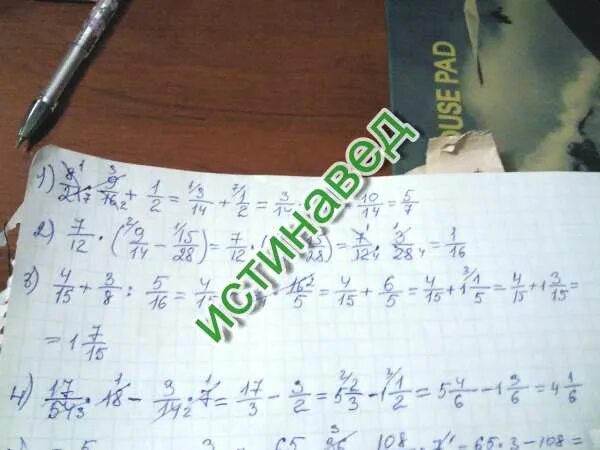 OUSE PAD
истинавед
1) 8/21 · 9/16 + 1/2 = 3/14 + 1/2 = 3/14 10/14 = 5/7
2) 7/12 · (9/14 − 15/28) = 7/12 · ( /28) = 7/12 · 3/28 = 1/16
3) 4/15 + 3/8 : 5/16 = 4/15 16/5 = 4/15 + 6/5 = 4/15 + 1 1/5 = 4/15 + 1 3/15 =
= 1 7/15
4) 17/54 · 18 − 3/14 · 7 = 17/3 − 3/2 = 5 2/3 − 1 1/2 = 5 4/6 − 1 3/6 = 4 1/6
5 3 65 36 108 · 7 = 65 · 3 − 108 =